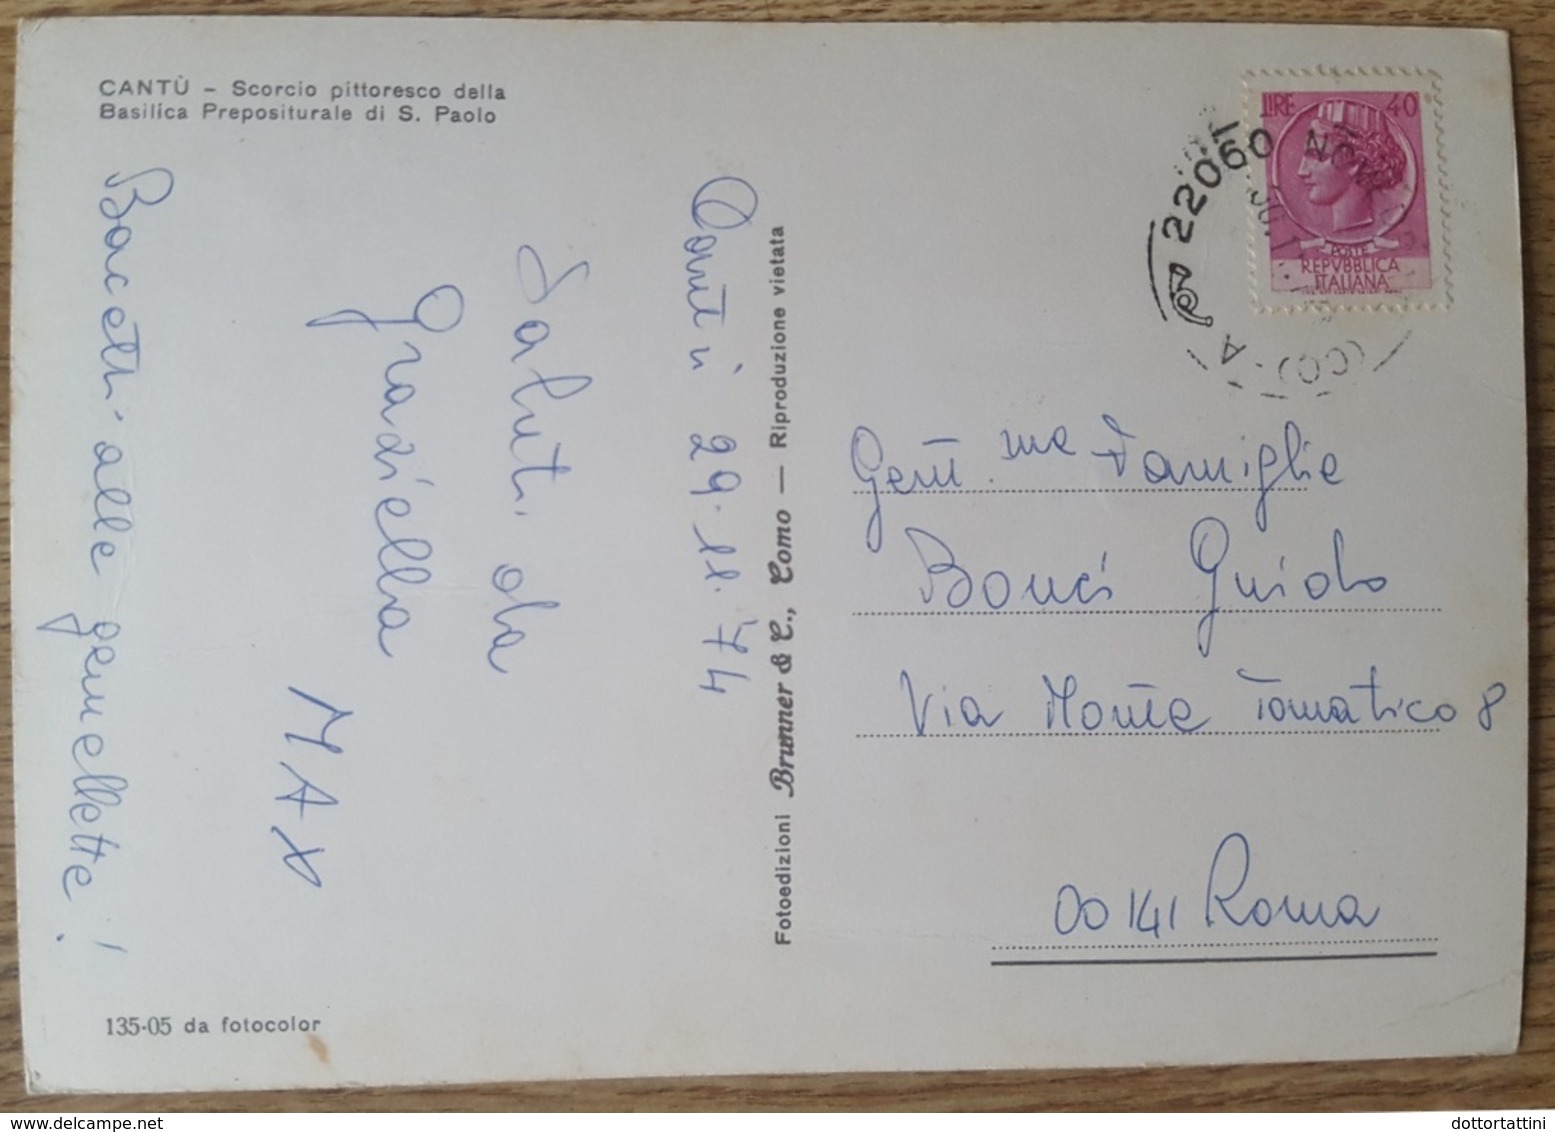 CANTÙ - Scorcio pittoresco della
Basilica Prepositurale di S. Paolo
Cantù 29.11.74
Saluti da
Graziella
MAX
Bacetti alle gemellette!
135-05 da fotocolor
Fotoedizioni Brunner & C., Como — Riproduzione vietata
LIRE 40
POSTE
REPVBBLICA
ITALIANA
22060
(CO) - A
Gent.ma Famiglia
Bonci Guido
Via Monte Tomatico 8
00141 Roma
dottortattini